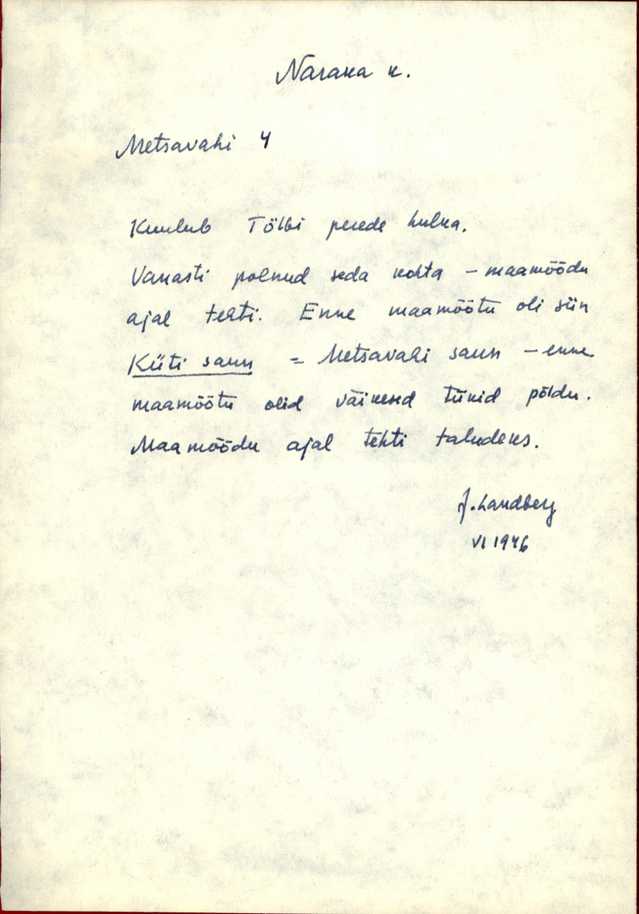 Naraka k.
Metsavahi 4
Kuulub Tõlbi perede hulka.
Vanasti polnud seda kohta – maamõõdu
ajal tehti. Enne maamõõtu oli siin
Küti saun = Metsavahi saun – enne
maamõõtu olid väikesed tükid põldu.
Maamõõdu ajal tehti taludeks.
J. Landberg
VI 1946